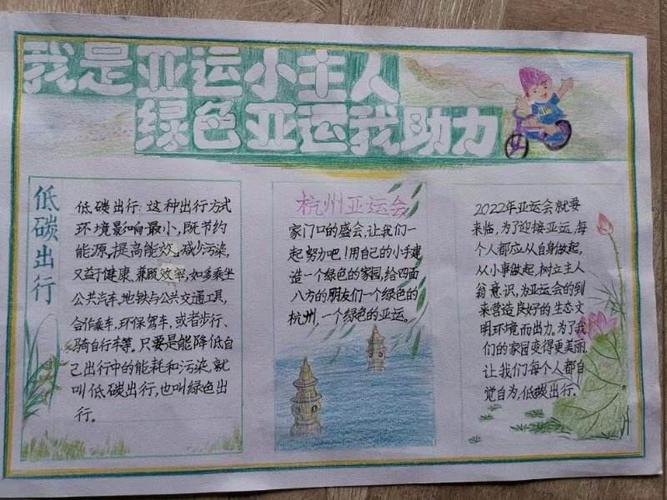 我是亚运小主人
绿色亚运我助力
低碳出行
低碳出行:这种出行方式
环境影响最小,既节约
能源,提高能效,减少污染,
又益于健康,兼顾效率,如多乘坐
公共汽车,地铁与公共交通工具,
合作乘车,环保驾车,或者步行、
骑自行车等。只要是能降低自
己出行中的能耗和污染,就
叫低碳出行,也叫绿色出
行。
杭州亚运会
家门口的盛会,让我们一
起努力吧!用自己的小手建
造一个绿色的家园,给四面
八方的朋友们一个绿色的
杭州,一个绿色的亚运。
2022年亚运会就要
来临,为了迎接亚运,每
个人都应从自身做起,
从小事做起,树立主人
翁意识,为亚运会的到
来营造良好的生态文
明环境而出力,为了我
们的家园变得更美丽,
让我们每个人都自
觉自为,低碳出行。